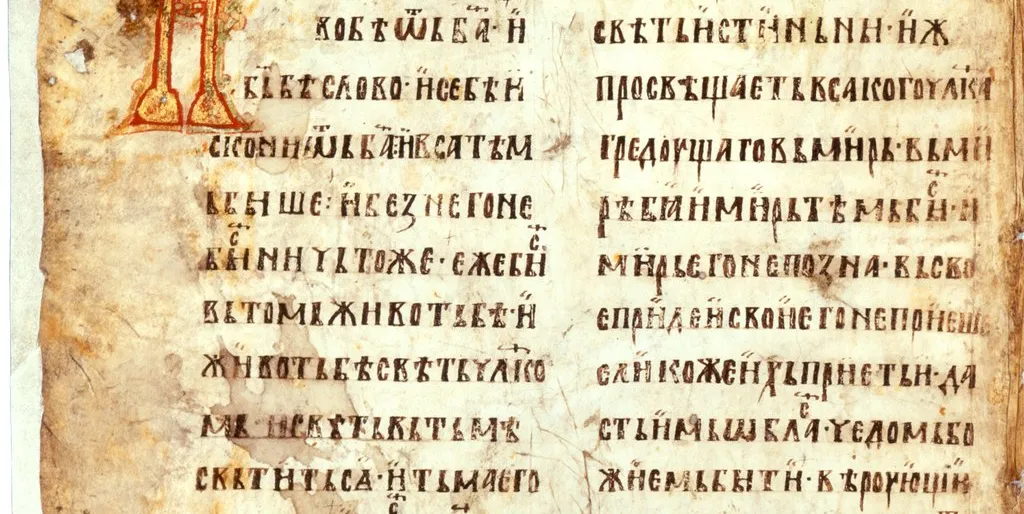 вобѣѿьб҃а·и
б҃ьбѣслово·исебѣи
скониѿьб҃а·ивсатѣм
ьбꙑше:ибезнегоне
бꙑⷭ҇ничьтоже·ежебꙑⷭ҇
вьтомьживотьбѣ·и
животьбѣсвѣтьчл҃ко
мь·исвѣтьвьтьмѣ
свьтитьсѧ·итьмаего
свѣтьистиньнꙑ·иж
просвѣщаетьвсакогочл҃ка
гредоущаговьмирь·вьми
рѣбѣимирьтѣмьбꙑⷭ҇·и
мирьегонепозна·вьсво
епридеисвоиегонеприеше
еликожеихьприетьи·да
стьимьѡблаⷭ҇·чедомьбо
жиемьбꙑти·вѣроующіи